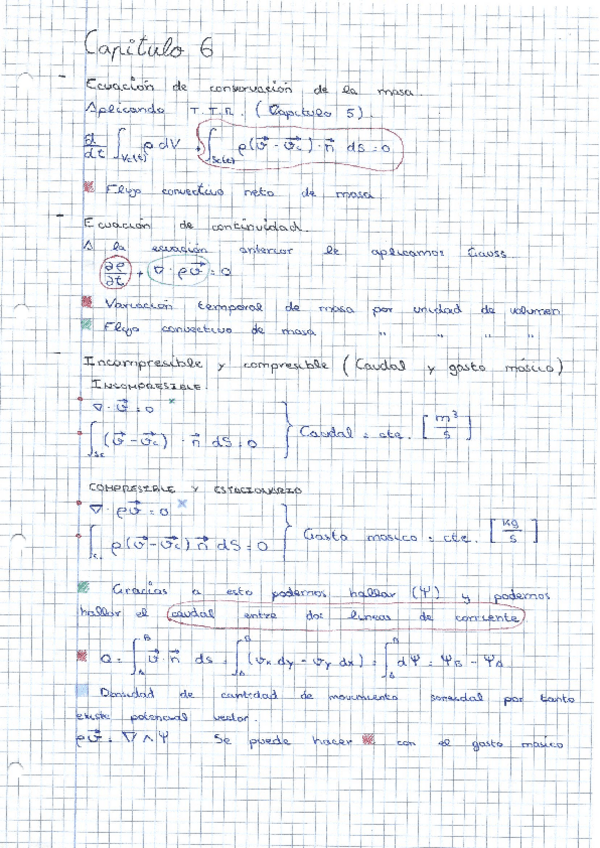 Capitulo 6
- Ecuación de conservación de la masa.
Aplicando T.T.R. (Capitulo 5).
d/dt ∫Vc(t) ρ dV + ∫Sc(t) ρ(v⃗ - v⃗c)·n⃗ dS = 0
Flujo convectivo neto de masa
- Ecuación de continuidad.
A la ecuación anterior le aplicamos Gauss
∂ρ/∂t + ∇·ρv⃗ = 0
Variación temporal de masa por unidad de volumen
Flujo convectivo de masa " " " "
- Incompresible y compresible (Caudal y gasto másico)
INCOMPRESIBLE.
∇·v⃗ = 0 ×
∫Sc (v⃗ - v⃗c)·n⃗ dS = 0 } Caudal = cte. [m³/s]
COMPRESIBLE Y ESTACIONARIO
∇·ρv⃗ = 0 ×
∫ ρ(v⃗ - v⃗c) n⃗ dS = 0 } Gasto masico = cte. [kg/s]
Gracias a esto podemos hallar (Ψ) y podemos
hallar el caudal entre dos lineas de corriente
Q = ∫A^B v⃗·n⃗ ds = ∫A^B (vx dy - vy dx) = ∫A^B dΨ = ΨB - ΨA
Densidad de cantidad de movimiento solenoidal por tanto
existe potencial vector.
ρv⃗ = ∇ ∧ Ψ Se puede hacer con el gasto masico